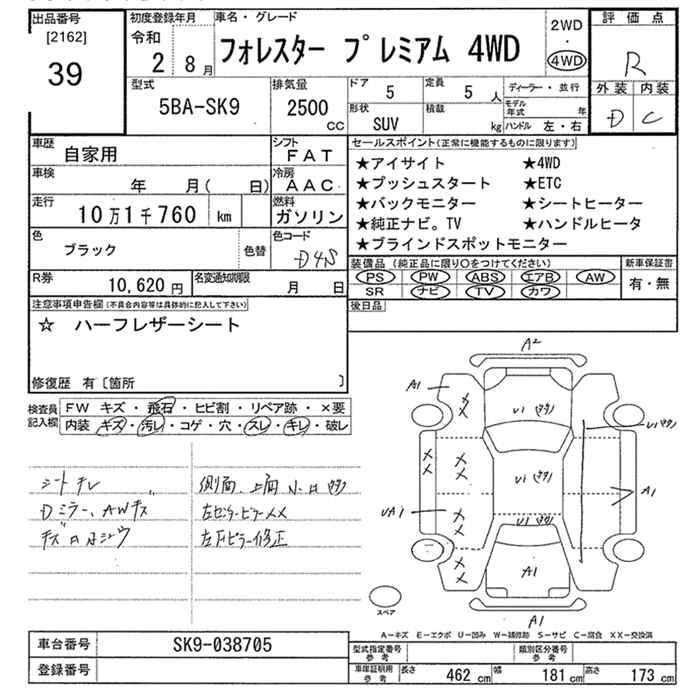 出品番号
[2162]
39
初度登録年月
令和
2 年 8 月
車名・グレード
フォレスター プレミアム 4WD
2WD
・
4WD
評価点
R
外装 内装
D C
型式
5BA-SK9
排気量
2500
CC
ドア
5
定員
5 人
形状
SUV
積載
kg
ディーラー・並行
モデル年式 年
ハンドル 左・右
車歴
自家用
シフト
FAT
車検
年 月( 日)
冷房
AAC
走行
10万1千760 km
燃料
ガソリン
色
ブラック
色替
色コード
D4S
R券
10,620円
名変通知期限
月 日
セールスポイント(正常に機能するものに限ります)
★アイサイト ★4WD
★プッシュスタート ★ETC
★バックモニター ★シートヒーター
★純正ナビ。TV ★ハンドルヒータ
★ブラインドスポットモニター
装備品(純正品に限り○をつけてください)
PS PW ABS エアB AW
SR ナビ TV カワ
新車保証書
有・無
後日品
注意事項申告欄(不具合内容等は具体的に記入して下さい)
☆ ハーフレザーシート
修復歴 有〔箇所 〕
検査員記入欄
FW キズ・飛石・ヒビ割・リペア跡・×要
内装 キズ・汚レ・コゲ・穴・スレ・キレ・破レ
シートキレ
Dミラー、AWキズ
側面、上面 小凹
左センターピラーXX
左Fピラー修正
A2
A1
U1
U1
U1
U1
UA1
A1
A1
A1
スペア
A-キズ E-エクボ U-凹み W-補修跡 S-サビ C-腐食 XX-交換済
車台番号
SK9-038705
登録番号
型式指定番号
参考
類別区分番号
参考
車庫証明用
参考
長さ 462 cm 幅 181 cm 高さ 173 cm